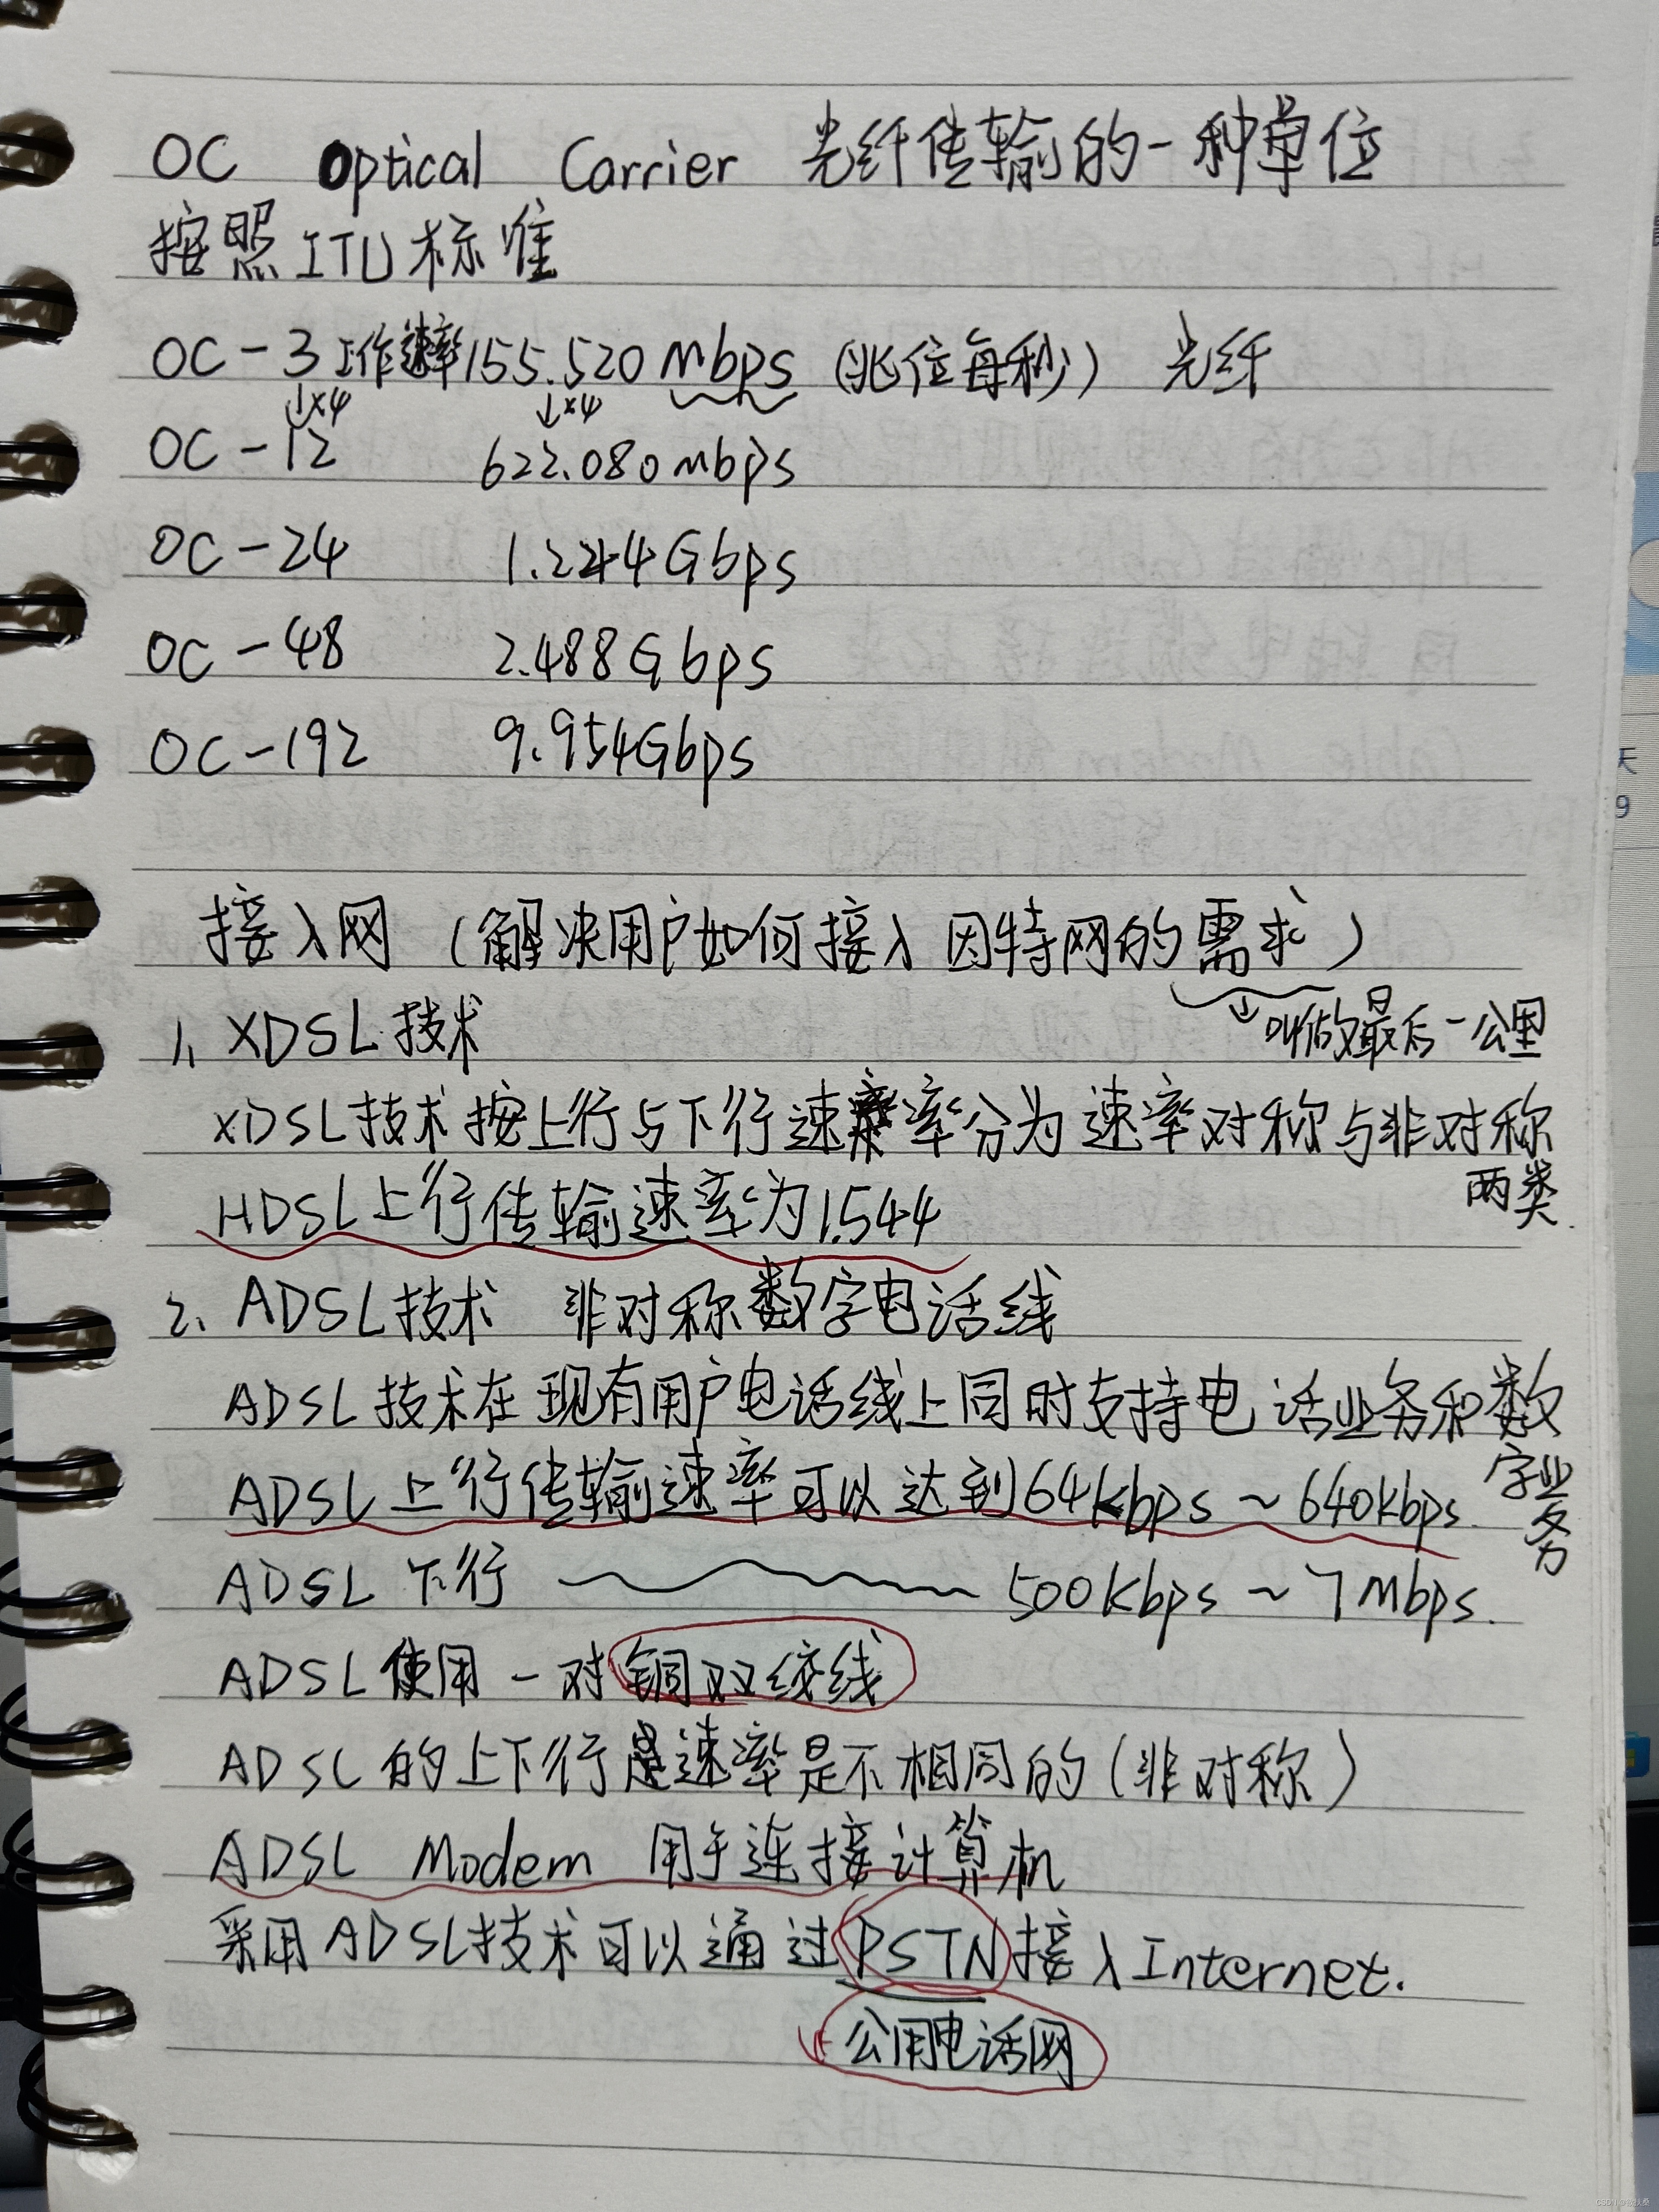 OC Optical Carrier 光纤传输的一种单位
按照ITU标准
OC-3 工作速率155.520 mbps (兆位每秒) 光纤
↓×4 ↓×4
OC-12 622.080mbps
OC-24 1.244Gbps
OC-48 2.488Gbps
OC-192 9.954Gbps
接入网 (解决用户如何接入因特网的需求)
↓叫做最后一公里
1、XDSL技术
XDSL技术按上行与下行速率分为速率对称与非对称
两类.
HDSL上行传输速率为1.544
2、ADSL技术 非对称数字电话线
ADSL技术在现有用户电话线上同时支持电话业务和数
字业务
ADSL上行传输速率可以达到64Kbps~640Kbps.
ADSL下行 500Kbps~7Mbps.
ADSL使用一对铜双绞线
ADSL的上下行速率是不相同的(非对称)
ADSL Modem 用于连接计算机
采用ADSL技术可以通过PSTN接入Internet.
公用电话网
天
9